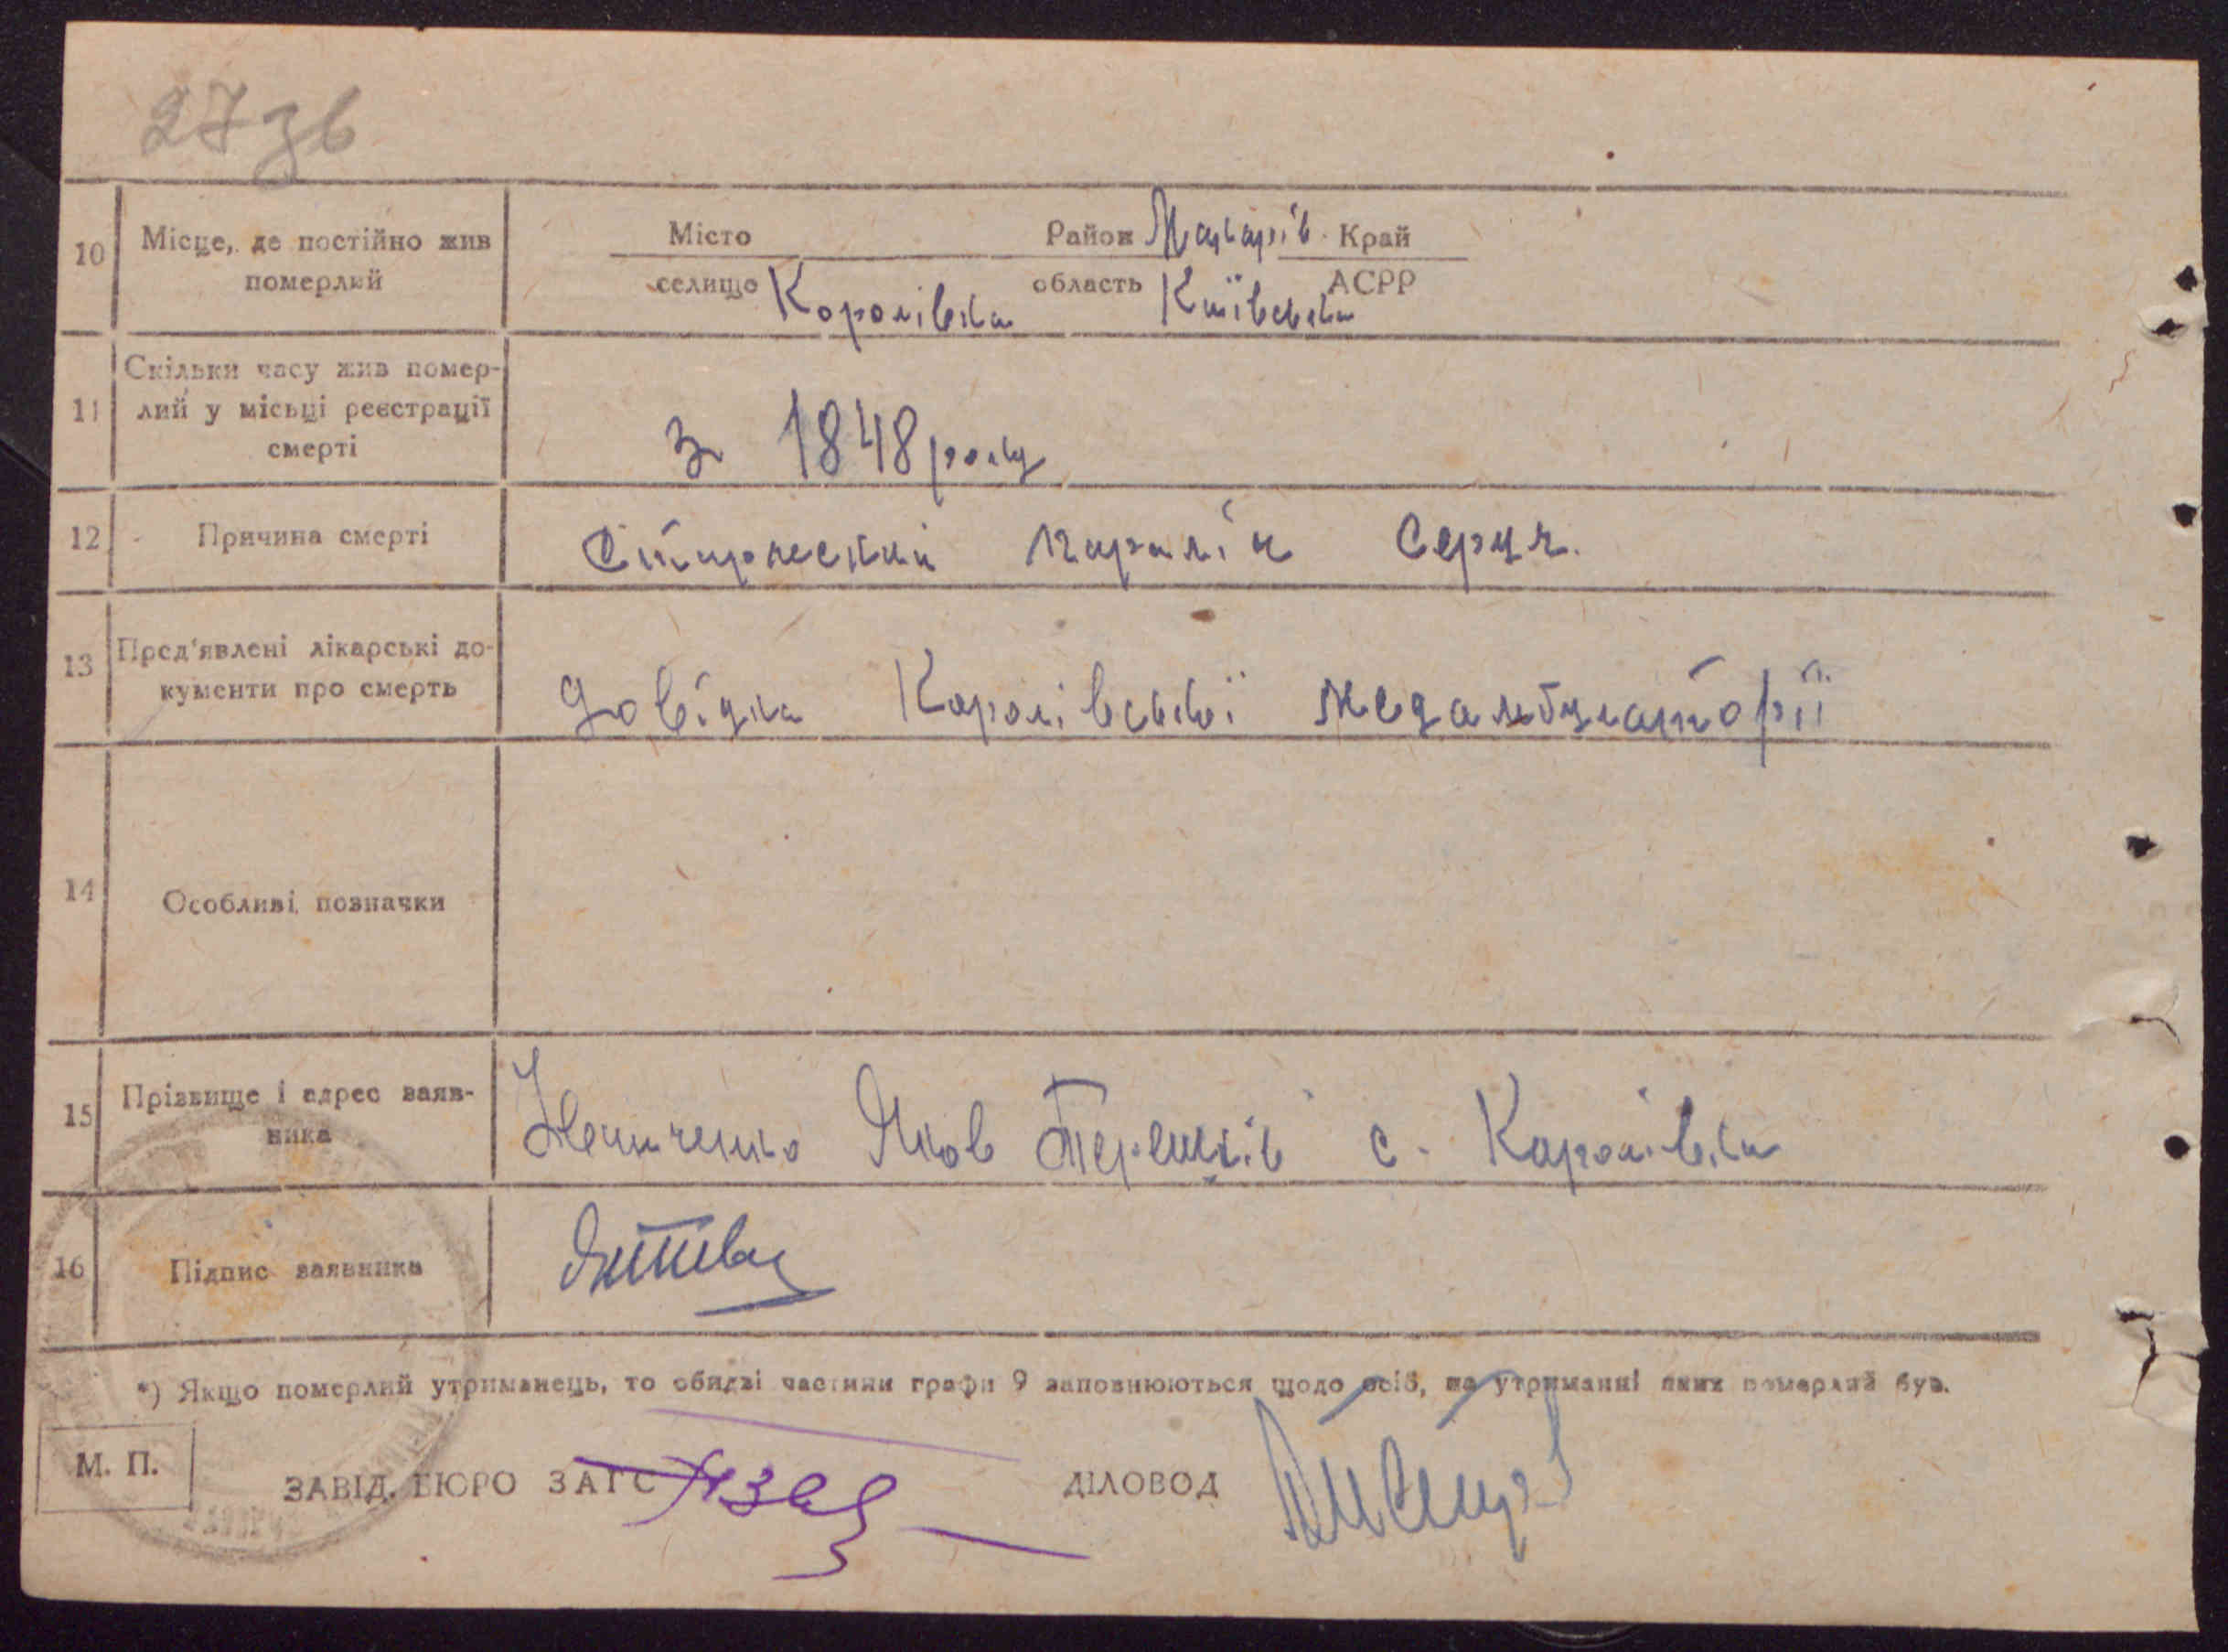 27 зв
10 Місце, де постійно жив померлий
Місто Район Макарів Край
селище Королівка область Київська АСРР
11 Скільки часу жив помер-
лий у місьці реєстрації
смерті
з 1848 року
12 Причина смерті Старческий параліч серця.
13 Пред'явлені лікарські до-
кументи про смерть
Довідка Королівської медамбулаторії
14 Особливі позначки
15 Прізвище і адрес заяв-
ника
Яков с. Королівка
16 Підпис заявника
*) Якщо померлий утриманець, то обидві частини графи 9 заповнюються щодо осіб, на утриманні яких померлий був.
М. П.
ЗАВІД. БЮРО ЗАГС ДІЛОВОД